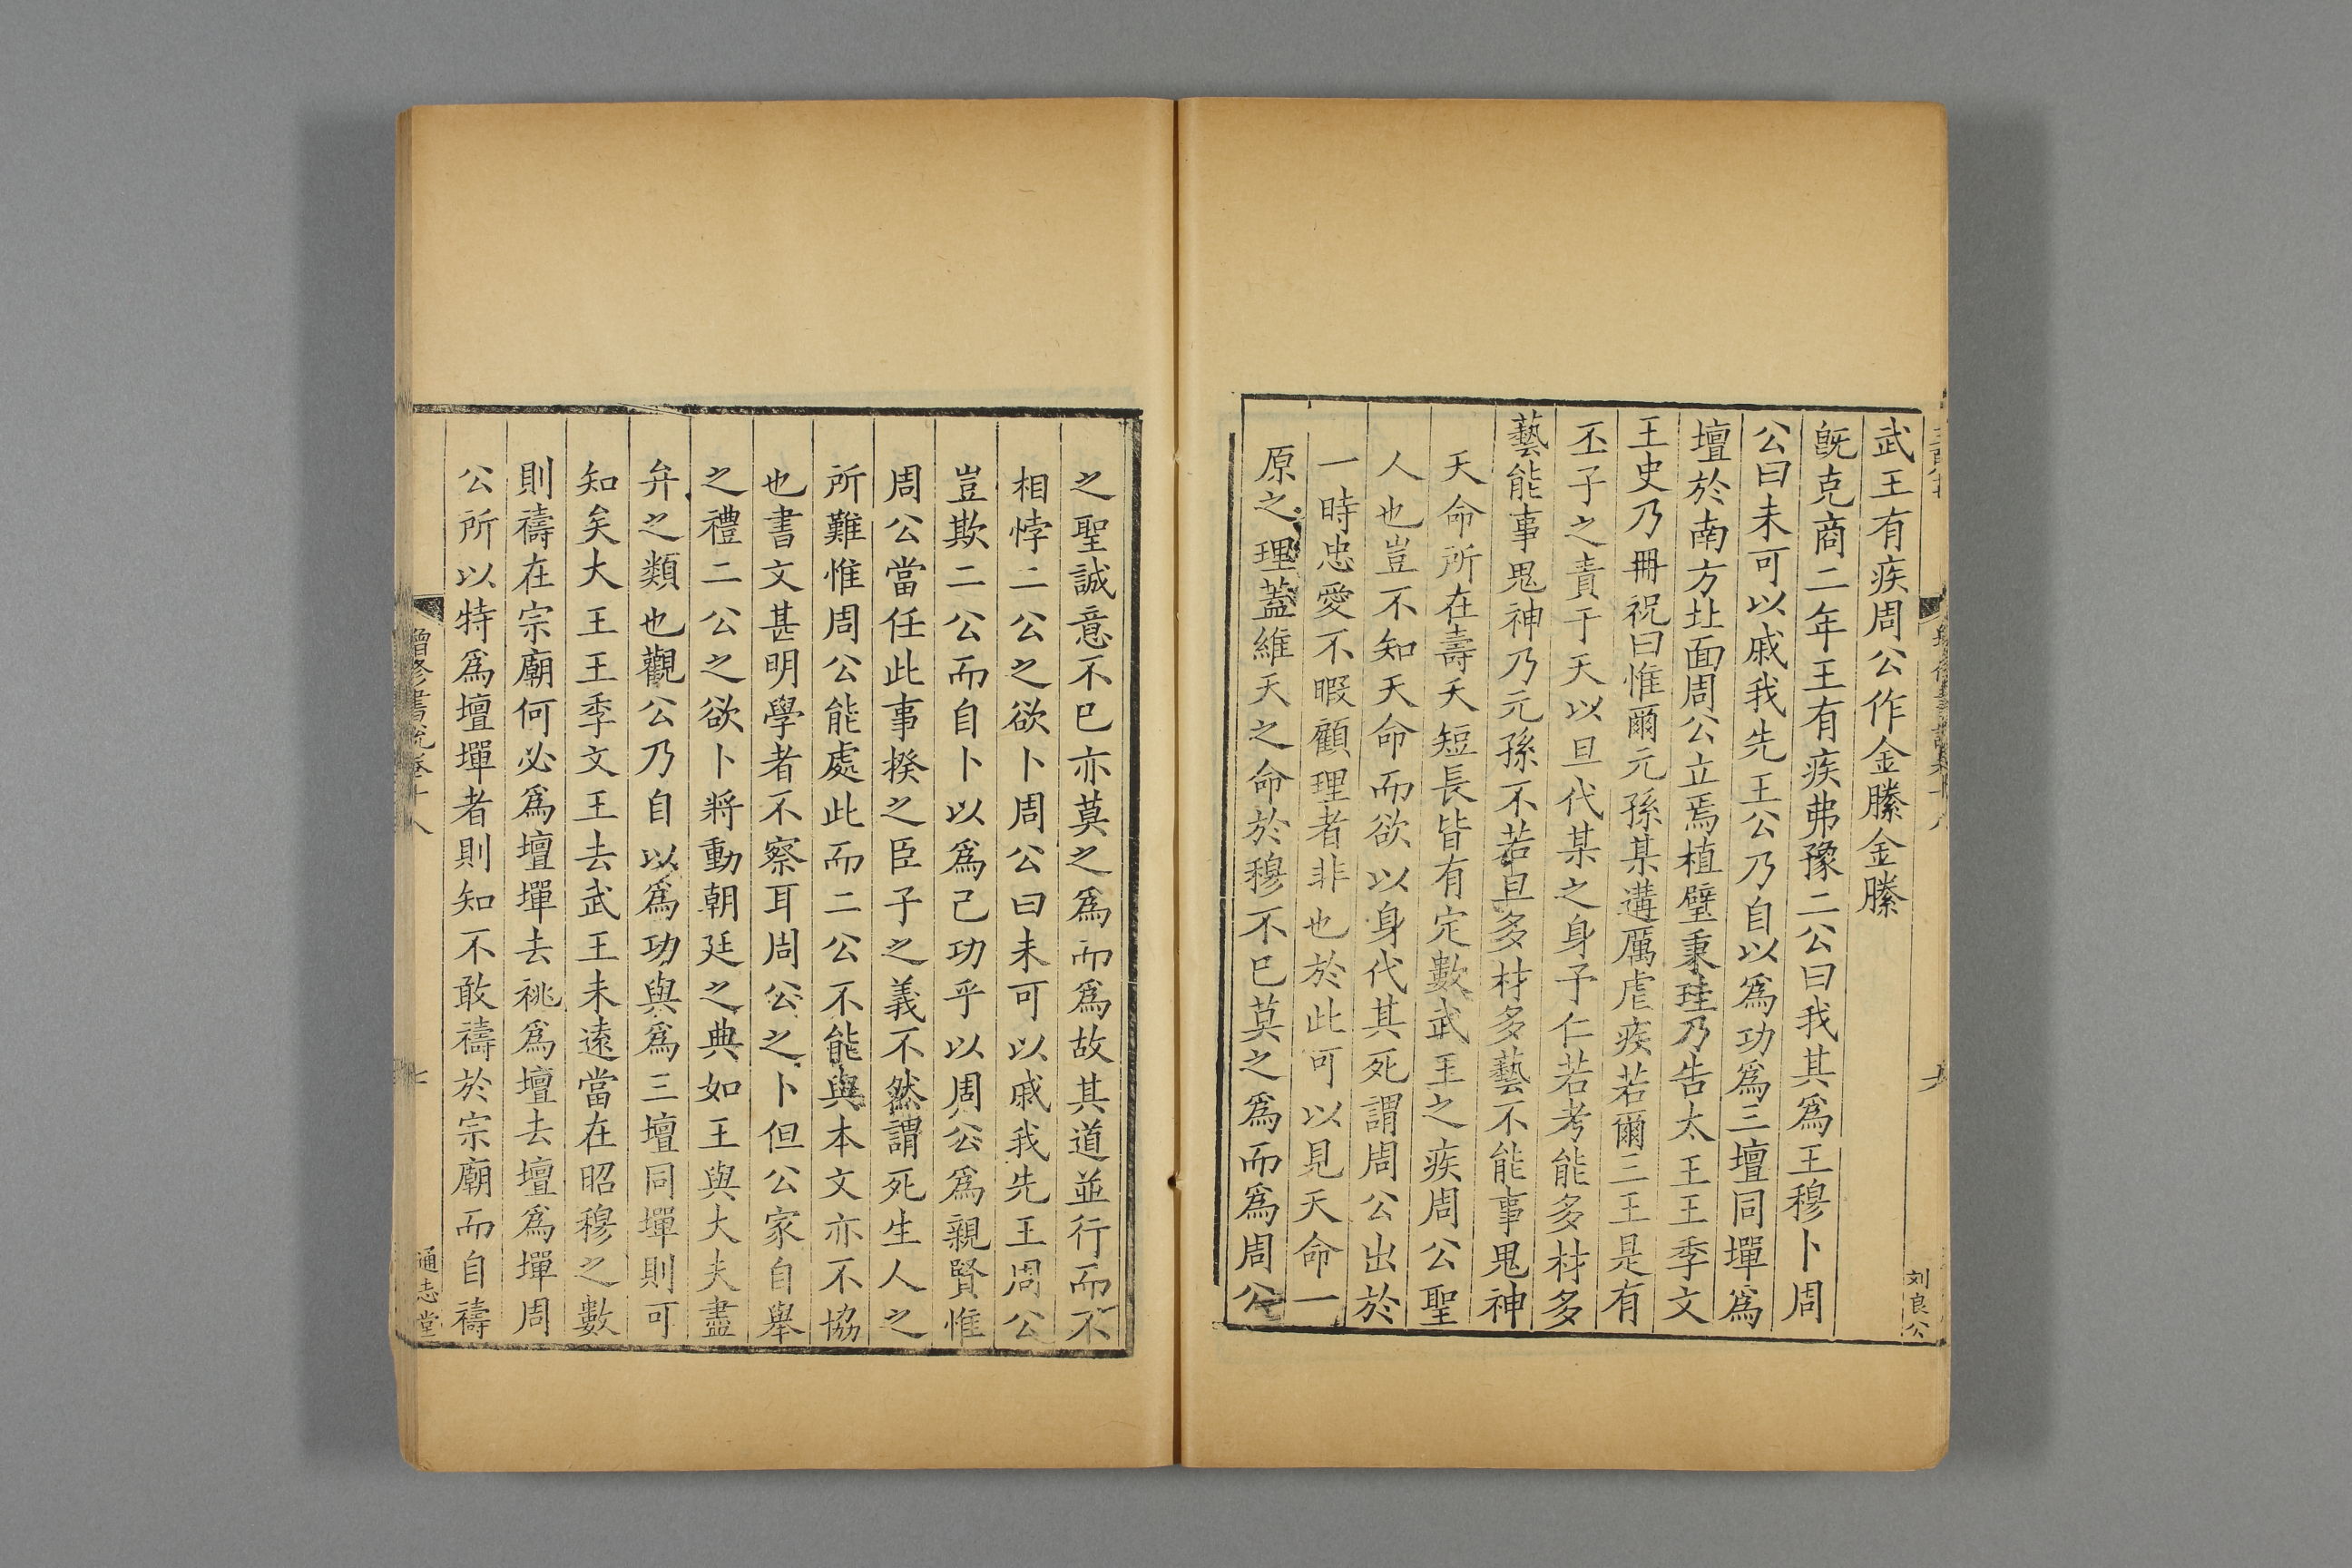 武王有疾周公作金縢金縢
旣克商二年王有疾弗豫二公曰我其爲王穆卜周
公曰未可以戚我先王公乃自以爲功爲三壇同墠爲
壇於南方北面周公立焉植璧秉珪乃告太王王季文
王史乃冊祝曰惟爾元孫某遘厲虐疾若爾三王是有
丕子之責于天以旦代某之身予仁若考能多材多
藝能事鬼神乃元孫不若旦多材多藝不能事鬼神
天命所在壽夭短長皆有定數武王之疾周公聖
人也豈不知天命而欲以身代其死謂周公出於
一時忠愛不暇顧理者非也於此可以見天命一
原之理蓋維天之命於穆不已莫之爲而爲周公
刘良公
之聖誠意不已亦莫之爲而爲故其道並行而不
相悖二公之欲卜周公曰未可以戚我先王周公
豈欺二公而自卜以爲己功乎以周公爲親賢惟
周公當任此事揆之臣子之義不然謂死生人之
所難惟周公能處此而二公不能與本文亦不協
也書文甚明學者不察耳周公之卜但公家自舉
之禮二公之欲卜將動朝廷之典如王與大夫盡
弁之類也觀公乃自以爲功與爲三壇同墠則可
知矣大王王季文王去武王未遠當在昭穆之數
則禱在宗廟何必爲壇墠去祧爲壇去壇爲墠周
公所以特爲壇墠者則知不敢禱於宗廟而自禱
增修書說卷十八
七
通志堂